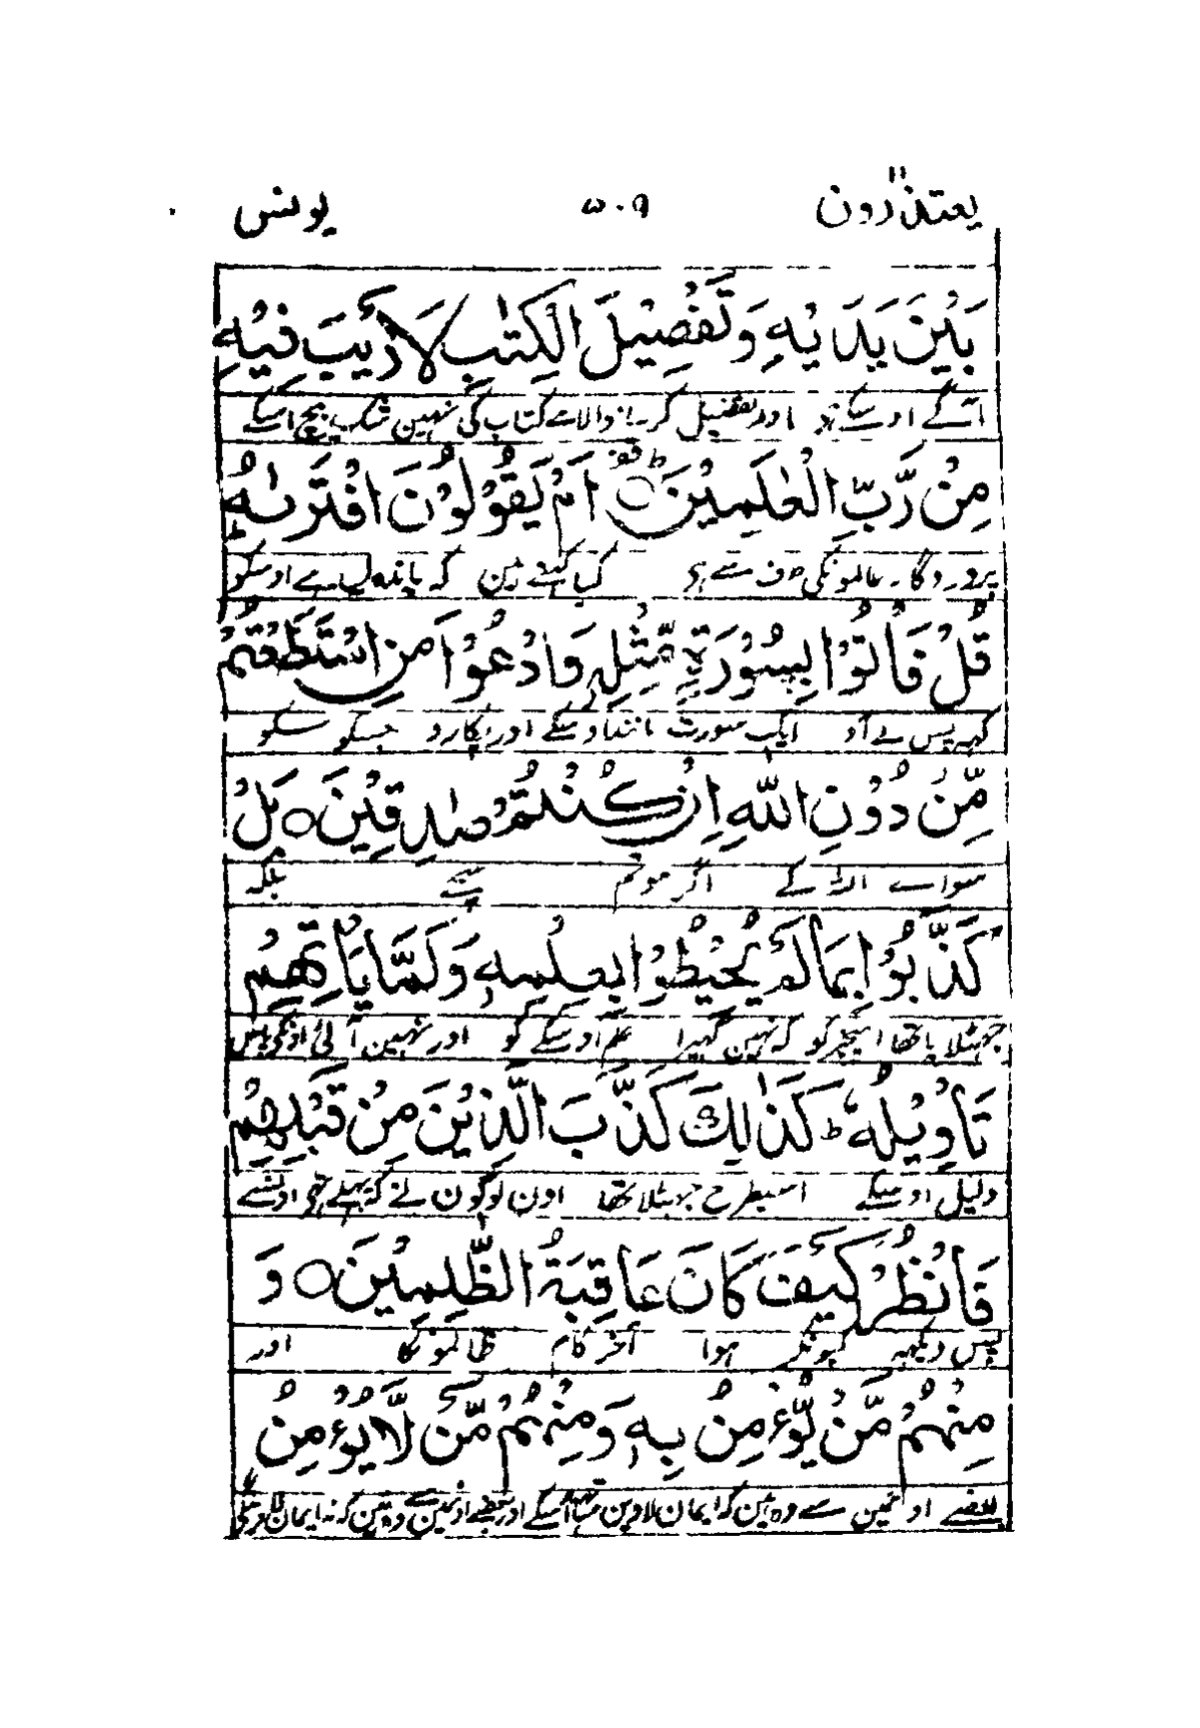 یعتذرون ۵۰۹ یونس
بَيْنَ يَدَيْهِ وَتَفْصِيْلَ الْكِتٰبِ لَا رَيْبَ فِيْهِ
آگے اوسکے اور تفصیل کرنے والا ہے کتاب کی نہین شک بیچ اسکے
مِنْ رَّبِّ الْعٰلَمِيْنَ ۝ اَمْ يَقُوْلُوْنَ افْتَرٰىهُ
پروردگار عالمونکی طرف سے ہی کیا کہتے ہین کہ باندہ لیا ہے اوسکو
قُلْ فَاْتُوْا بِسُوْرَةٍ مِّثْلِهٖ وَادْعُوْا مَنِ اسْتَطَعْتُمْ
کہہ پس لے آؤ ایک سورت مانند اوسکے اور پکارو جسکو سکو
مِّنْ دُوْنِ اللّٰهِ اِنْ كُنْتُمْ صٰدِقِيْنَ ۝ بَلْ
سواے اللہ کے اگر ہو تم سچے بلکہ
كَذَّبُوْا بِمَا لَمْ يُحِيْطُوْا بِعِلْمِهٖ وَلَمَّا يَاْتِهِمْ
جہٹلایا تھا اسچیز کو کہ نہین گہیرا علم اوسکے کو اور نہین آئی اونکی پاس
تَاْوِيْلُهٗ ؕ كَذٰلِكَ كَذَّبَ الَّذِيْنَ مِنْ قَبْلِهِمْ
دلیل اوسکے اسیطرح جہٹلا تھا اون لوگون نے کہ پہلے تھی اونسے
فَانْظُرْ كَيْفَ كَانَ عَاقِبَةُ الظّٰلِمِيْنَ ۝ وَ
پس دیکہہ کیونکر ہوا آخر کام ظالمونکا اور
مِنْهُمْ مَّنْ يُّؤْمِنُ بِهٖ وَمِنْهُمْ مَّنْ لَّا يُؤْمِنُ
بعضے اونمین سے وہ ہین کہ ایمان لاوین اور بعضے اونمین سے وہ ہین کہ نہ ایمان